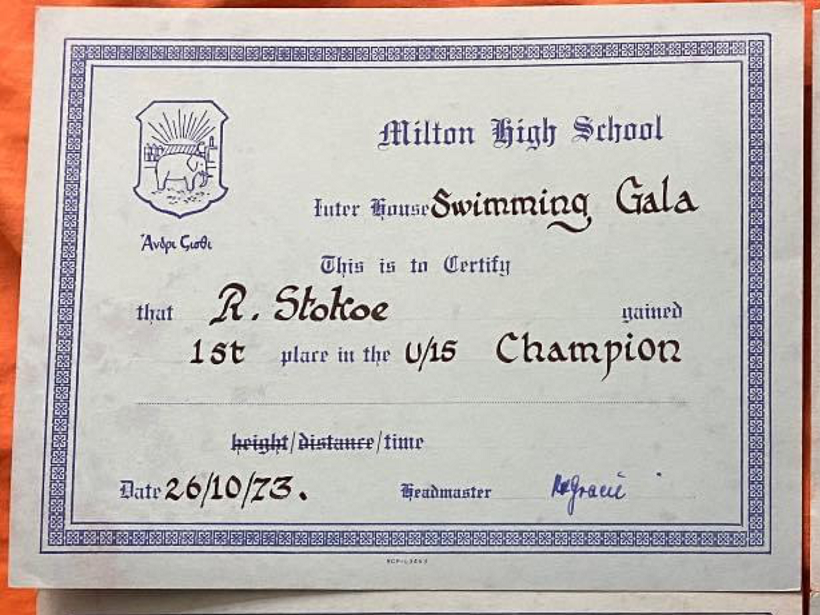 Milton High School
Inter House Swimming Gala
Ἄνδρι
This is to Certify
that R. Stokoe gained
1st place in the U/15 Champion
height/distance/time
Date 26/10/73. Headmaster